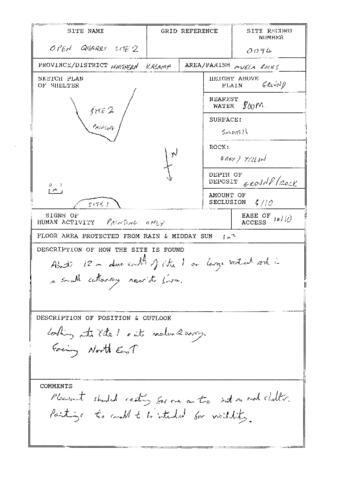 SITE NAME GRID REFERENCE SITE RECORD NUMBER
OPEN QUARRY SITE 2 0094
PROVINCE/DISTRICT NORTHERN KASAMA AREA/PARISH MWELA ROCKS
SKETCH PLAN OF SHELTER
SITE 2
PAINTING
N
SITE 1
HEIGHT ABOVE PLAIN GROUND
NEAREST WATER 800M
SURFACE:
SMOOTH
ROCK:
GREY / YELLOW
DEPTH OF DEPOSIT GROUND/ROCK
AMOUNT OF SECLUSION 6/10
SIGNS OF HUMAN ACTIVITY PAINTING ONLY EASE OF ACCESS 10/10
FLOOR AREA PROTECTED FROM RAIN & MIDDAY SUN 1m²
DESCRIPTION OF HOW THE SITE IS FOUND
About 12 m due of site 1 on large vertical rock in
a small near to
DESCRIPTION OF POSITION & OUTLOOK
Looking into Site 1
Facing North East
COMMENTS
Pleasant shaded for one or two not a real shelter.
Paintings too small to be intended for visibility.